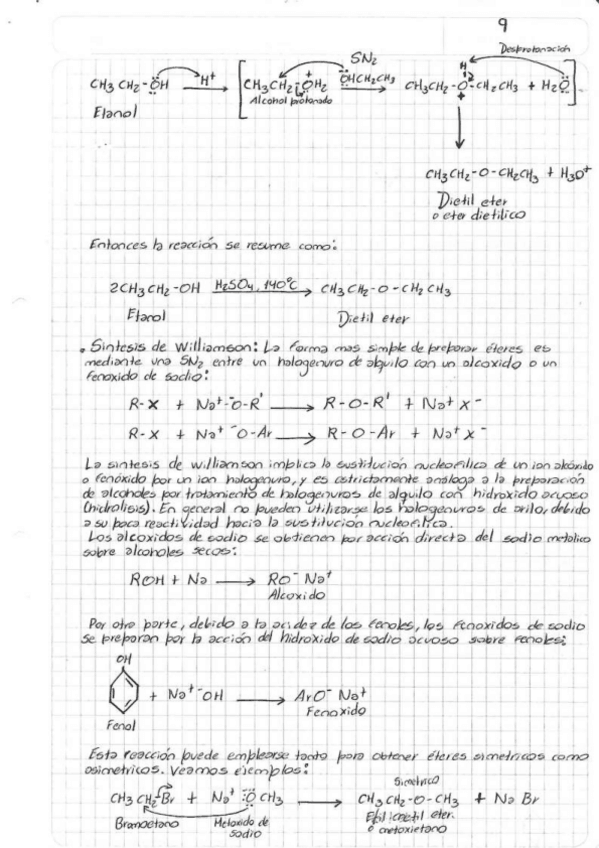 9
Desprotonación
SN2
CH3 CH2-ÖH H+ CH3CH2-ÖH2 ÖHCH2CH3 CH3CH2-O-CH2CH3 + H2Ö
Alcohol protonado
H
+
+
Etanol
CH3CH2-O-CH2CH3 + H3O+
Dietil eter
o eter dietilico
Entonces la reacción se resume como:
2CH3CH2-OH H2SO4, 140°C CH3CH2-O-CH2CH3
Etanol Dietil eter
. Sintesis de Williamson: La forma mas simple de preparar éteres es
mediante una SN2 entre un halogenuro de alquilo con un alcoxido o un
fenoxido de sodio:
R-X + Na+-O-R' → R-O-R' + Na+X-
R-X + Na+ -O-Ar → R-O-Ar + Na+X-
La sintesis de williamson implica la sustitución nucleofilica de un ion alkóxido
o fenóxido por un ion halogenuro, y es estrictamente analoga a la preparación
de alcoholes por tratamiento de halogenuros de alquilo con hidroxido acuoso
(hidrolisis). En general no pueden utilizarse los halogenuros de arilo, debido
a su poca reactividad hacia la sustitución nucleofilica.
Los alcoxidos de sodio se obtienen por acción directa del sodio metalico
sobre alcoholes secos:
ROH + Na → RO- Na+
Alcoxido
Por otra parte, debido a la acidez de los fenoles, los fenoxidos de sodio
se preparan por la acción del hidroxido de sodio acuoso sobre fenoles:
OH
+ Na+ -OH → ArO- Na+
Fenol Fenoxido
Esta reacción puede emplearse tanto para obtener éteres simetricos como
asimetricos. Veamos ejemplos:
Simetrico
CH3 CH2Br + Na+ :Ö CH3 → CH3 CH2-O-CH3 + Na Br
Bromoetano Metoxido de sodio Etil metil eter.
o metoxietano